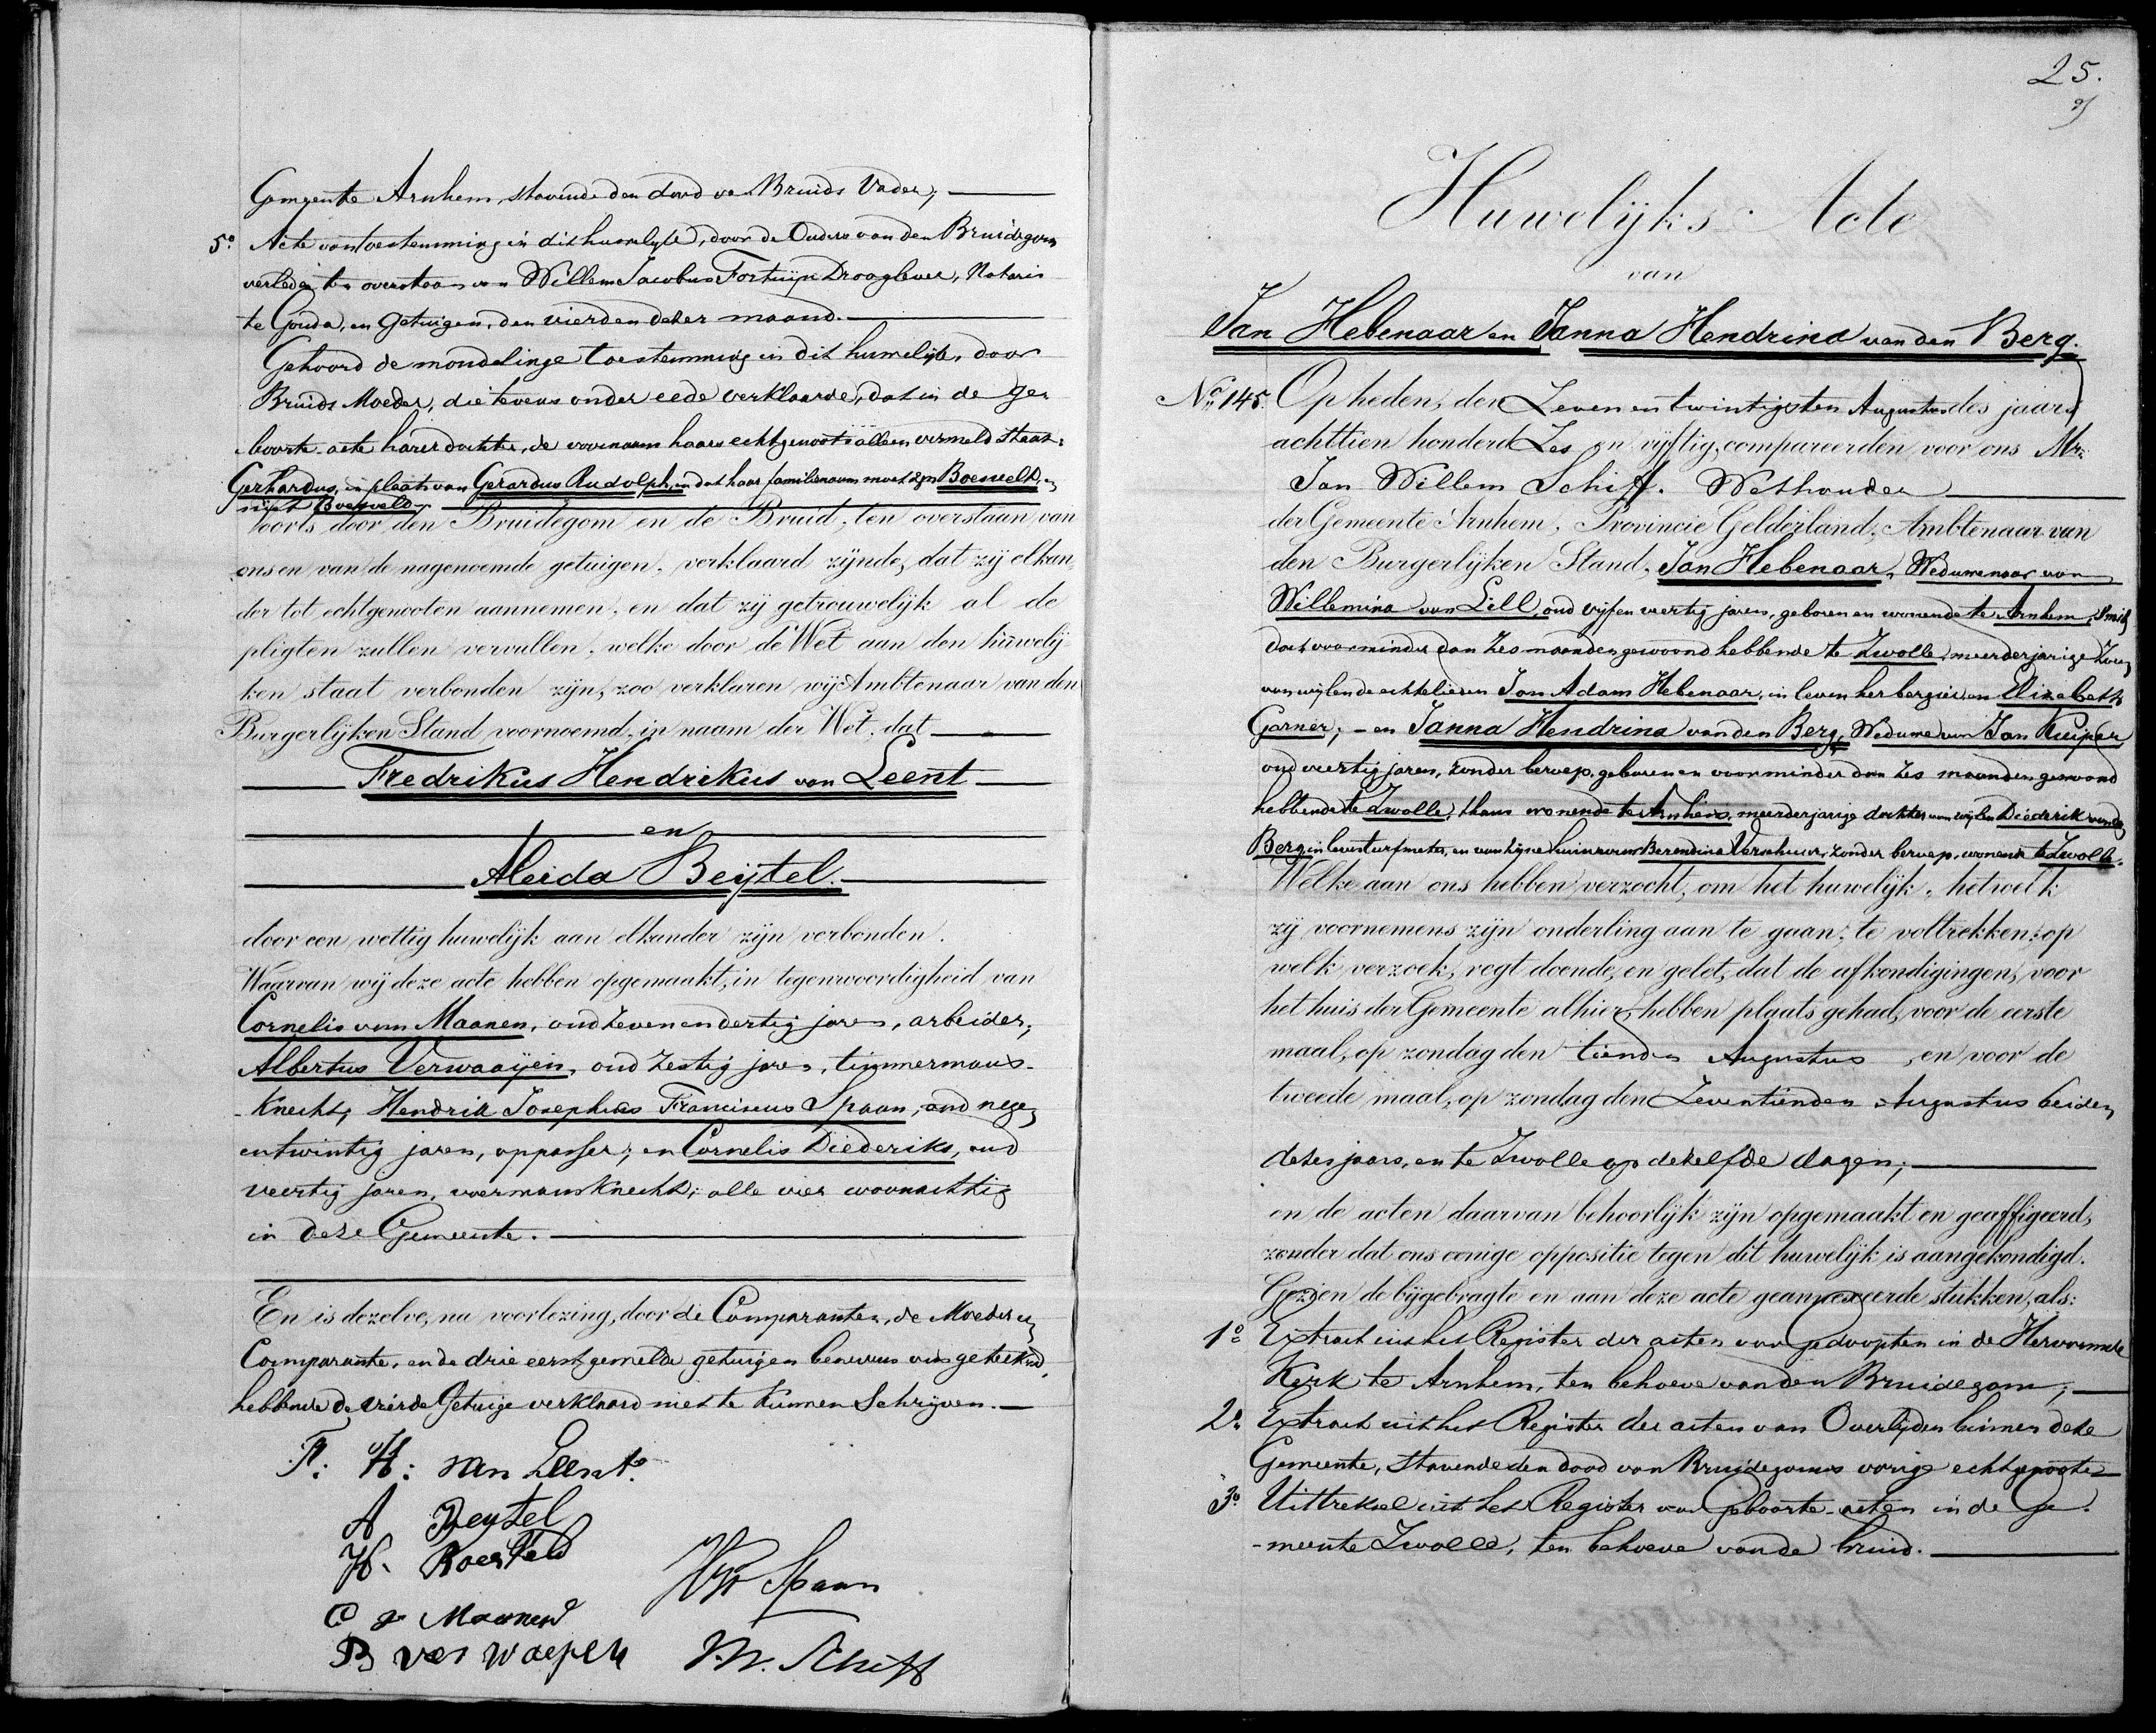 Gemeente Arnhem, stavende den dood van Bruids Vader;
5º Acte van toestemming in dit huwelijk, door de Ouders van den Bruidegom
verleden ten overstaan van Willem Jacobus Fortuijn Drooglever, Notaris
te Gouda, en Getuigen, den vierden dezer maand.
Gehoord de mondelinge toestemming in dit huwelijk, door
Bruids Moeder, die tevens onder eede verklaarde, dat in de ge-
boorte-acte harer dochter, de voornaam haars echtgenoots alleen vermeld staat:
Gerhardus, in plaats van Gerardus Rudolph, en dat haar familienaam moet zijn Boesveld, en
niet Boesveld.
Voorts door den Bruidegom en de Bruid, ten overstaan van
ons en van de nagenoemde getuigen, verklaard zijnde, dat zij elkan
der tot echtgenooten aannemen, en dat zij getrouwelijk al de
pligten zullen vervullen, welke door de Wet aan den huwelij-
ken staat verbonden zijn, zoo verklaren wij Ambtenaar van den
Burgerlijken Stand voornoemd, in naam der Wet, dat
Fredrikus Hendrikus van Leent
en
Aleida Beijtel.
door een wettig huwelijk aan elkander zijn verbonden.
Waarvan wij deze acte hebben opgemaakt, in tegenwoordigheid van
Cornelis van Maanen, oud zeven en dertig jaren, arbeider,
Albertus Verwaaijen, oud zestig jaren, timmermans-
-knecht, Hendrik Josephus Franciscus Spaan, oud negen
en twintig jaren, oppasser; en Cornelis Diederiks, oud
veertig jaren, voermansknecht; alle vier woonachtig
in deze Gemeente.
En is dezelve, na voorlezing, door de Comparanten, de Moeder der
Comparante, en de drie eerstgemelde getuigen benevens ons geteekend,
hebbende de vierde Getuige verklaard niet te kunnen Schrijven.
F: H: van Leent.
A Beytel
H. Boesveld
HJF Spaan
C v Maanen
B ver waeyen J.W. Schiff
25.
Huwelijks Acte
van
Jan Hebenaar en Janna Hendrina van den Berg.
No 145. Op heden, den Zeven en twintigsten Augustus des jaars
achttien honderd Zes en vijftig, compareerden voor ons Mr.
Jan Willem Schiff. Wethouder
der Gemeente Arnhem, Provincie Gelderland, Ambtenaar van
den Burgerlijken Stand, Jan Hebenaar, Weduwenaar van
Willemina van Lill, oud vijf en veertig jaren, geboren en wonende te Arnhem, Smid,
doch voor minder dan zes maanden gewoond hebbende te Zwolle, meerderjarige Zoon
van wijlen de echtelieden Jan Adam Hebenaar, in leven herbergier, en Elizabeth
Garner; - en Janna Hendrina van den Berg, Weduwe van Jan Kuiper
oud veertig jaren, zonder beroep, geboren en voor minder dan zes maanden gewoond
hebbende te Zwolle, thans wonende te Arnhem, meerderjarige dochter van wijlen Diederik van den
Berg in leven turfmeter, en van zijne huisvrouw Berendina Verschuur, zonder beroep, wonende te Zwolle.
Welke aan ons hebben verzocht, om het huwelijk, hetwelk
zij voornemens zijn onderling aan te gaan, te voltrekken; op
welk verzoek, regt doende, en gelet, dat de afkondigingen, voor
het huis der Gemeente alhier, hebben plaats gehad, voor de eerste
maal, op zondag den tienden Augustus, en voor de
tweede maal, op zondag den Zeventienden Augustus beiden
dezes jaars, en te Zwolle op dezelfde dagen;
en de acten daarvan behoorlijk zijn opgemaakt en geaffigeerd,
zonder dat ons eenige oppositie tegen dit huwelijk is aangekondigd.
Gezien de bijgebragte en aan deze acte geannexeerde stukken, als:
1º Extract uit het Register der acten van Gedoopten in de Hervormde
Kerk te Arnhem, ten behoeve van den Bruidegom;
2º Extract uit het Register der acten van Overlijden binnen deze
Gemeente, stavende den dood van Bruidegoms vorige echtgenoote
3º Uittreksel uit het Register van Geboorte-acten in de Ge-
-meente Zwolle, ten behoeve van de bruid.